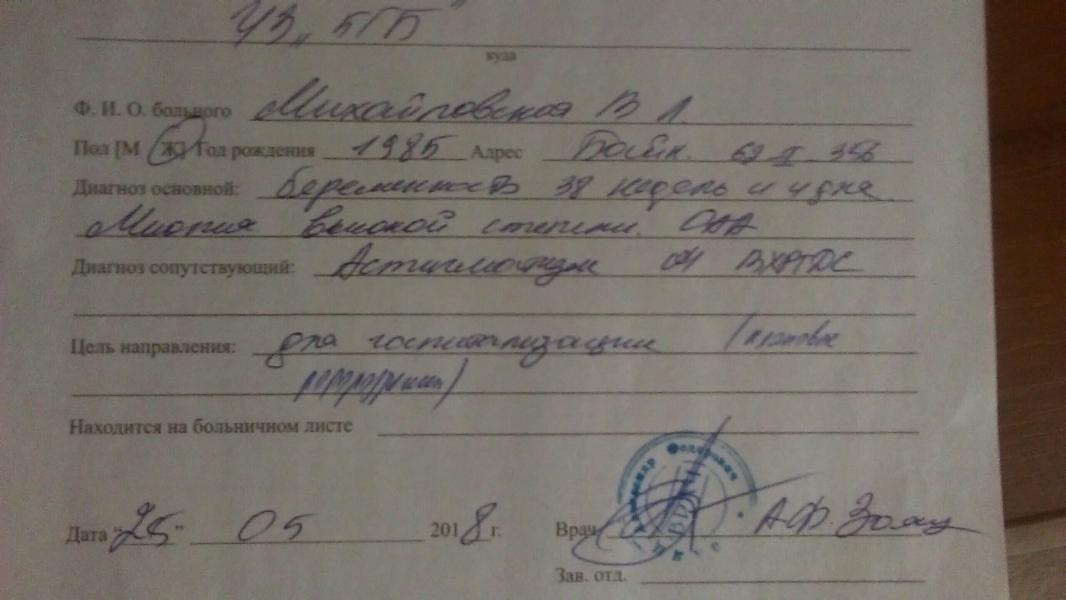 УЗ „БГБ"
куда
Ф. И. О. больного Михайловская В Л.
Пол [М Ж] Год рождения 1985 Адрес 62 II 356
Диагноз основной: беременность 38 недель и 4 дня.
Миопия высокой степени. ОАА
Диагноз сопутствующий: Астигматизм ОИ ПВХРДС
Цель направления: для госпитализации (плановое
родоразрешен)
Находится на больничном листе
Дата "25" 05 2018 г. Врач А.Ф.
Зав. отд.